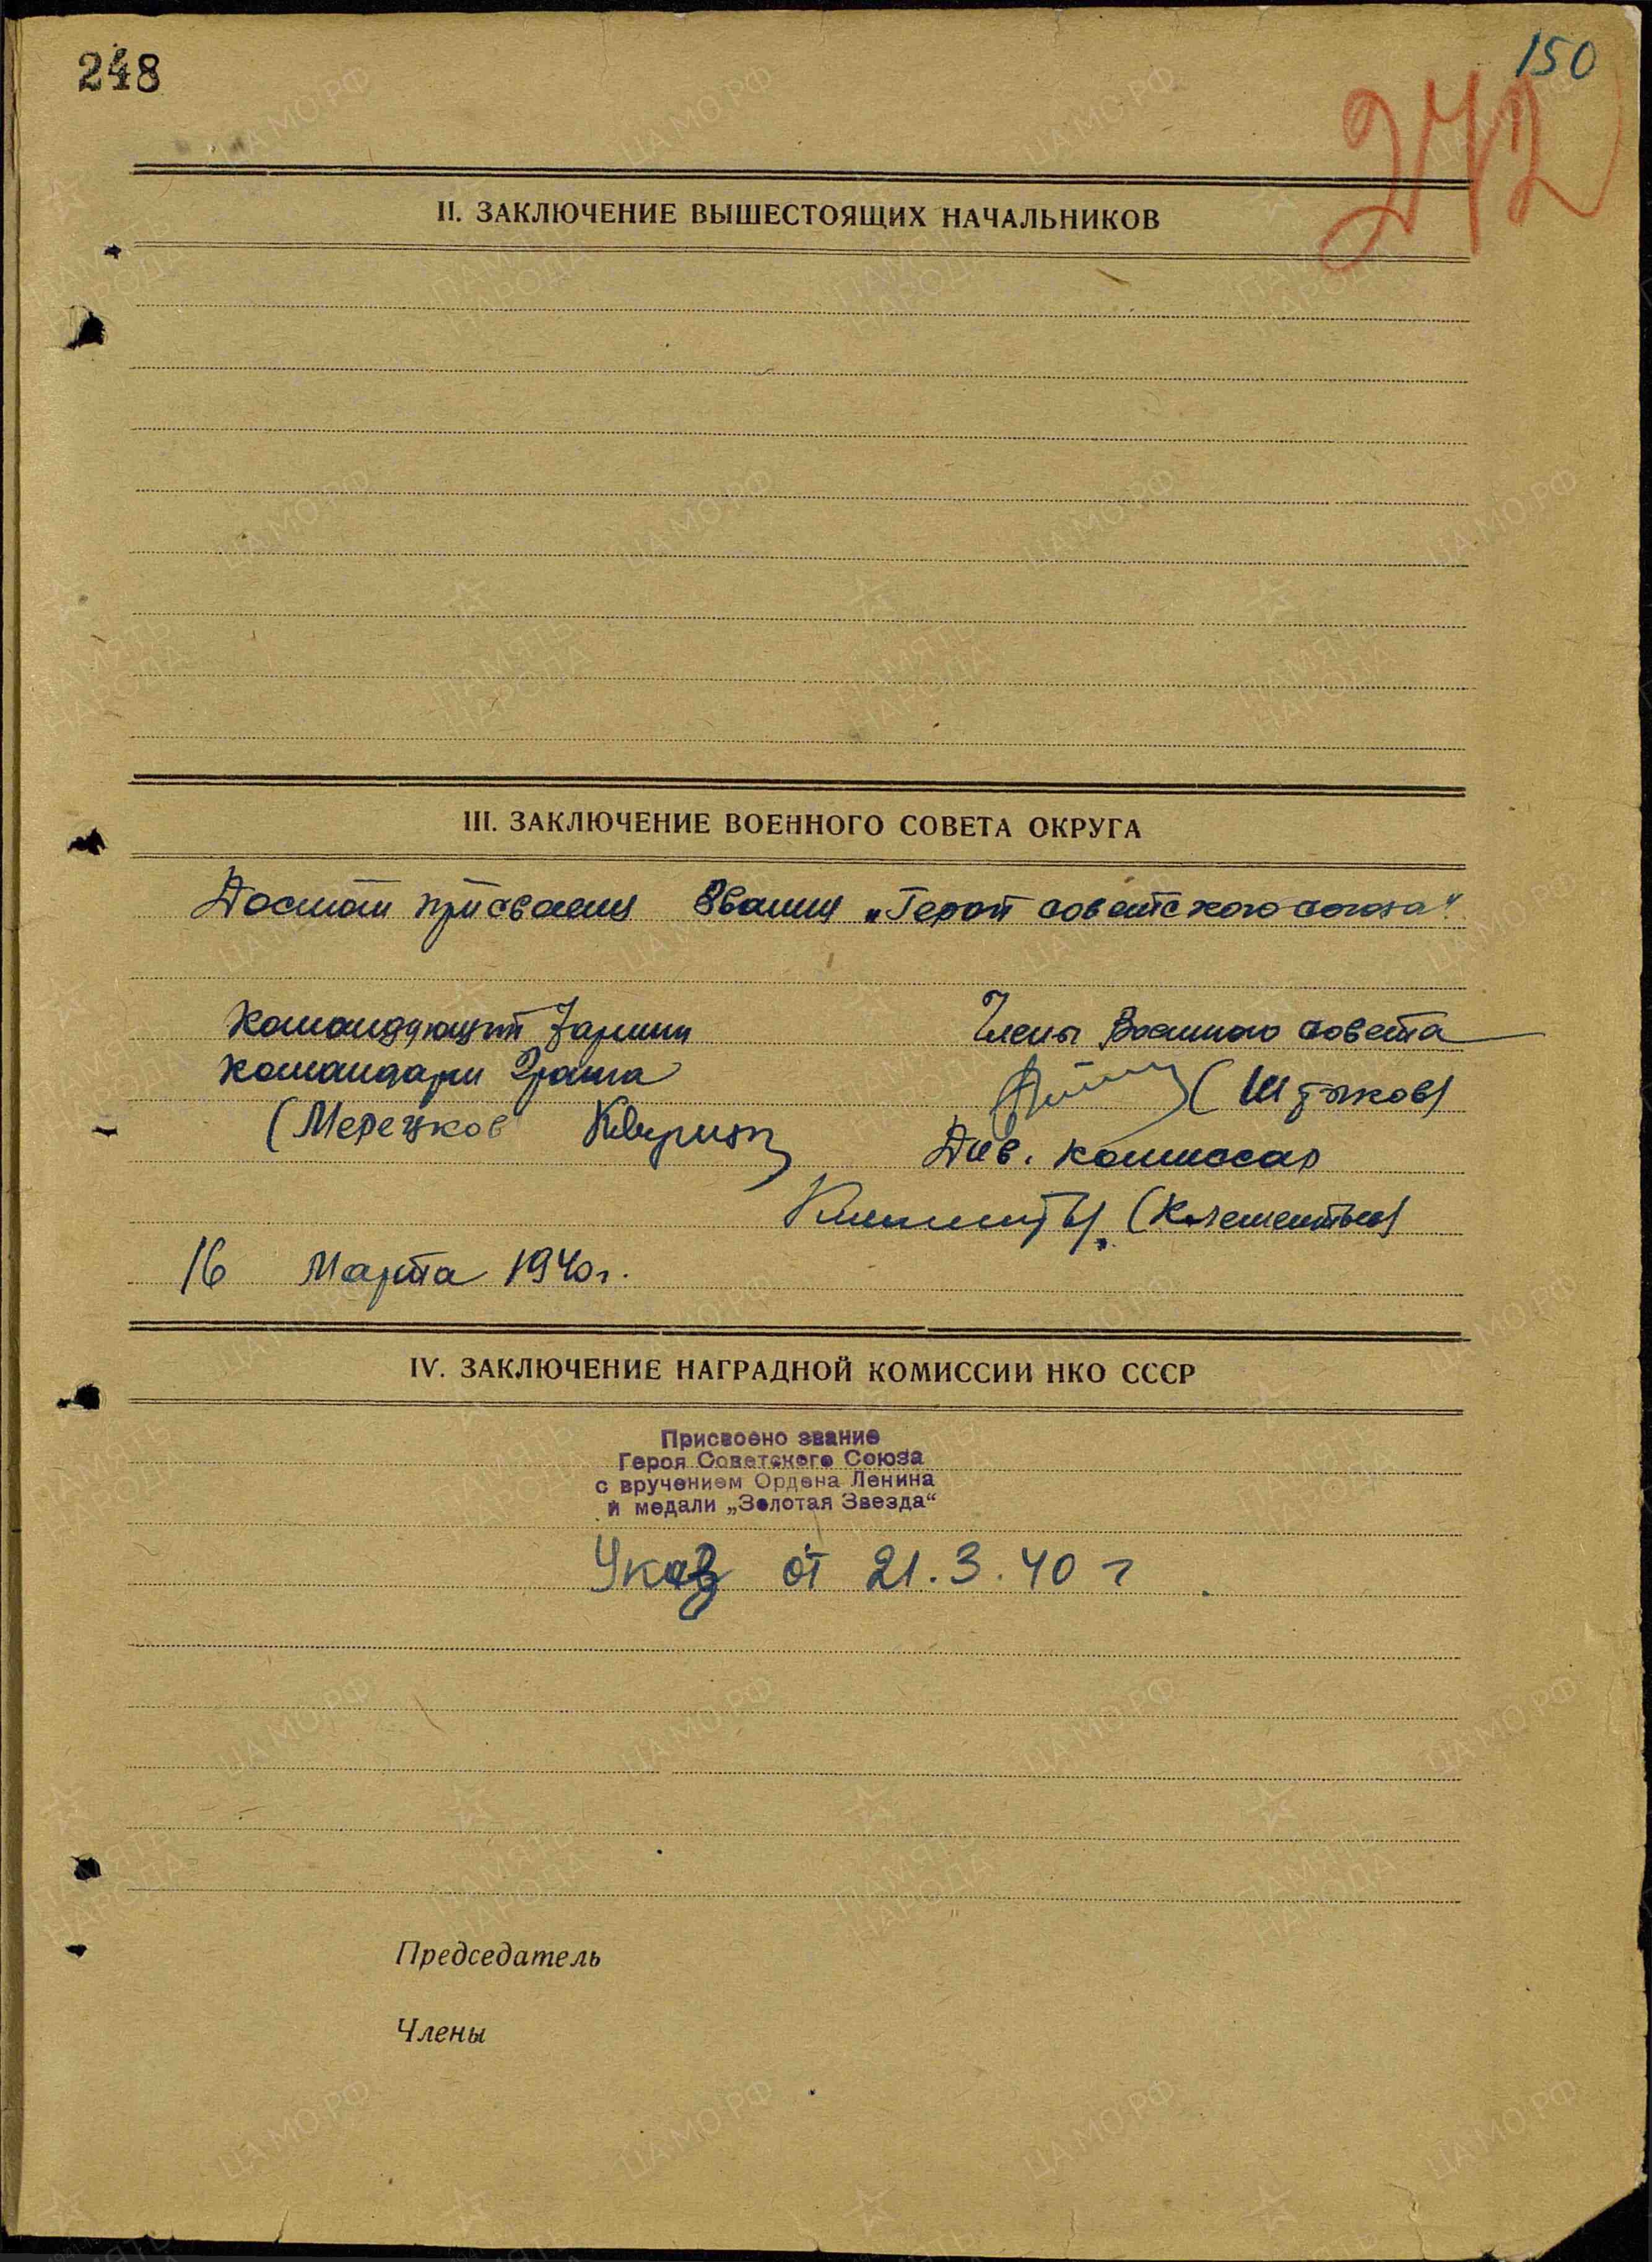 248
150
242
II. ЗАКЛЮЧЕНИЕ ВЫШЕСТОЯЩИХ НАЧАЛЬНИКОВ
III. ЗАКЛЮЧЕНИЕ ВОЕННОГО СОВЕТА ОКРУГА
Достоин присвоения звания „Герой советского союза“.
Командующий 7 армии
Члены Военного совета
командарм 2 ранга
(Штыков)
(Мерецков
Див. комиссар
(Клементьев)
16 Марта 1940 г.
IV. ЗАКЛЮЧЕНИЕ НАГРАДНОЙ КОМИССИИ НКО СССР
Присвоено звание
Героя Советского Союза
с вручением Ордена Ленина
и медали „Золотая Звезда“
Указ от 21.3.40 г
Председатель
Члены